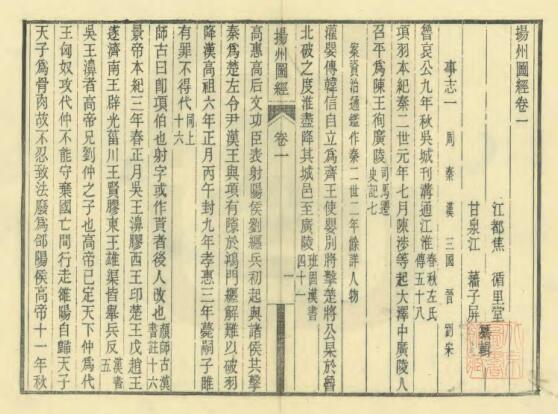 揚州圖經卷一
江都焦 循里堂
甘泉江 藩子屏 纂輯
事志一 周 秦 漢 三國 晉 劉宋
魯哀公九年秋吳城刋溝通江淮春秋左氏傳五十八
項羽本紀秦二世元年七月陳涉等起大澤中廣陵人
召平爲陳王徇廣陵司馬遷史記七
案資治通鑑作秦二世二年餘詳人物
灌嬰傳韓信自立爲齊王使嬰別將擊楚將公杲於魯
北破之度淮盡降其城邑至廣陵班固漢書四十一
揚州圖經
卷一
一
高惠高后文功臣表射陽侯劉纒兵初起與諸侯共擊
秦爲楚左令尹漢王與項有隙於鴻門纒解難以破羽
降漢高祖六年正月丙午封九年孝惠三年薨嗣子雎
有罪不得代同上十六
師古曰卽項伯也射字或作貰者後人改也顏師古漢書註十六
景帝本紀三年春正月吳王濞膠西王卬楚王戊趙王
遂濟南王辟光菑川王賢膠東王雄渠皆舉兵反漢書五
吳王濞者高帝兄劉仲之子也高帝已定天下仲爲代
王匈奴攻代仲不能守棄國亡間行走雒陽自歸天子
天子爲骨肉故不忍致法廢爲郃陽侯高帝十一年秋